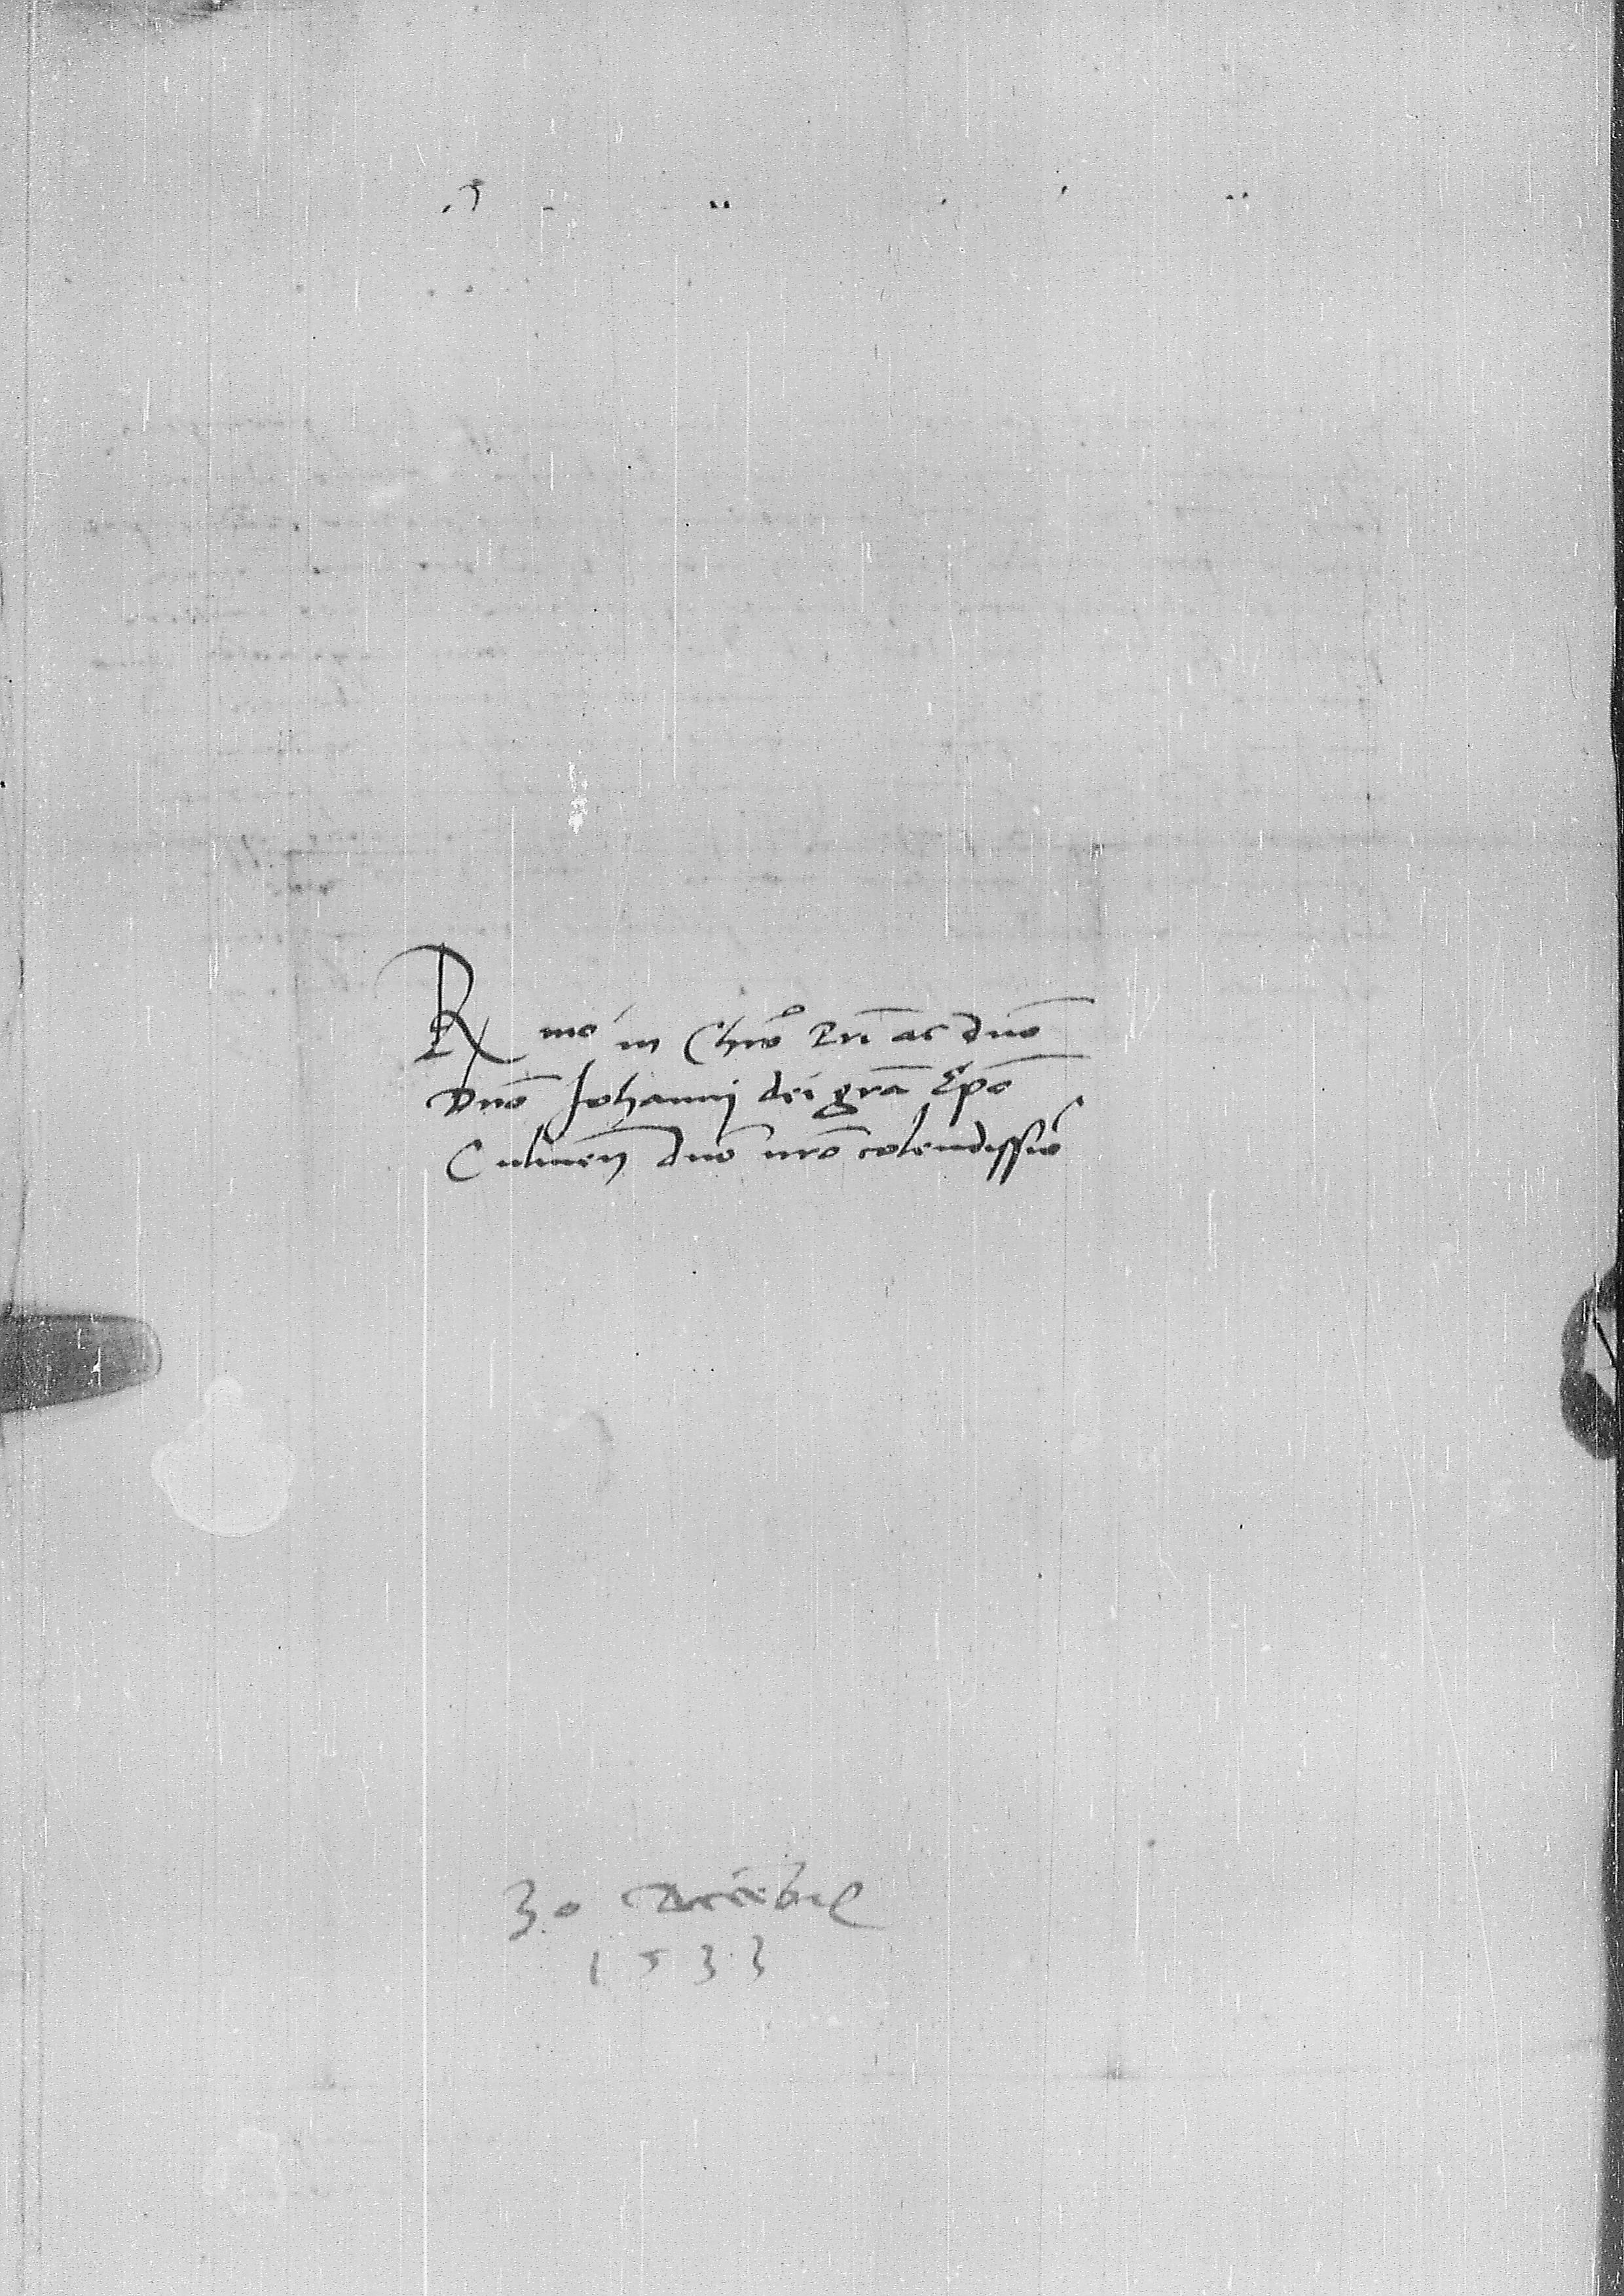 Rmo in Chro Pri ac dno
Dno Johanni dei gra Epo
Culmen dno nro colendissio
30 Decebr
1533